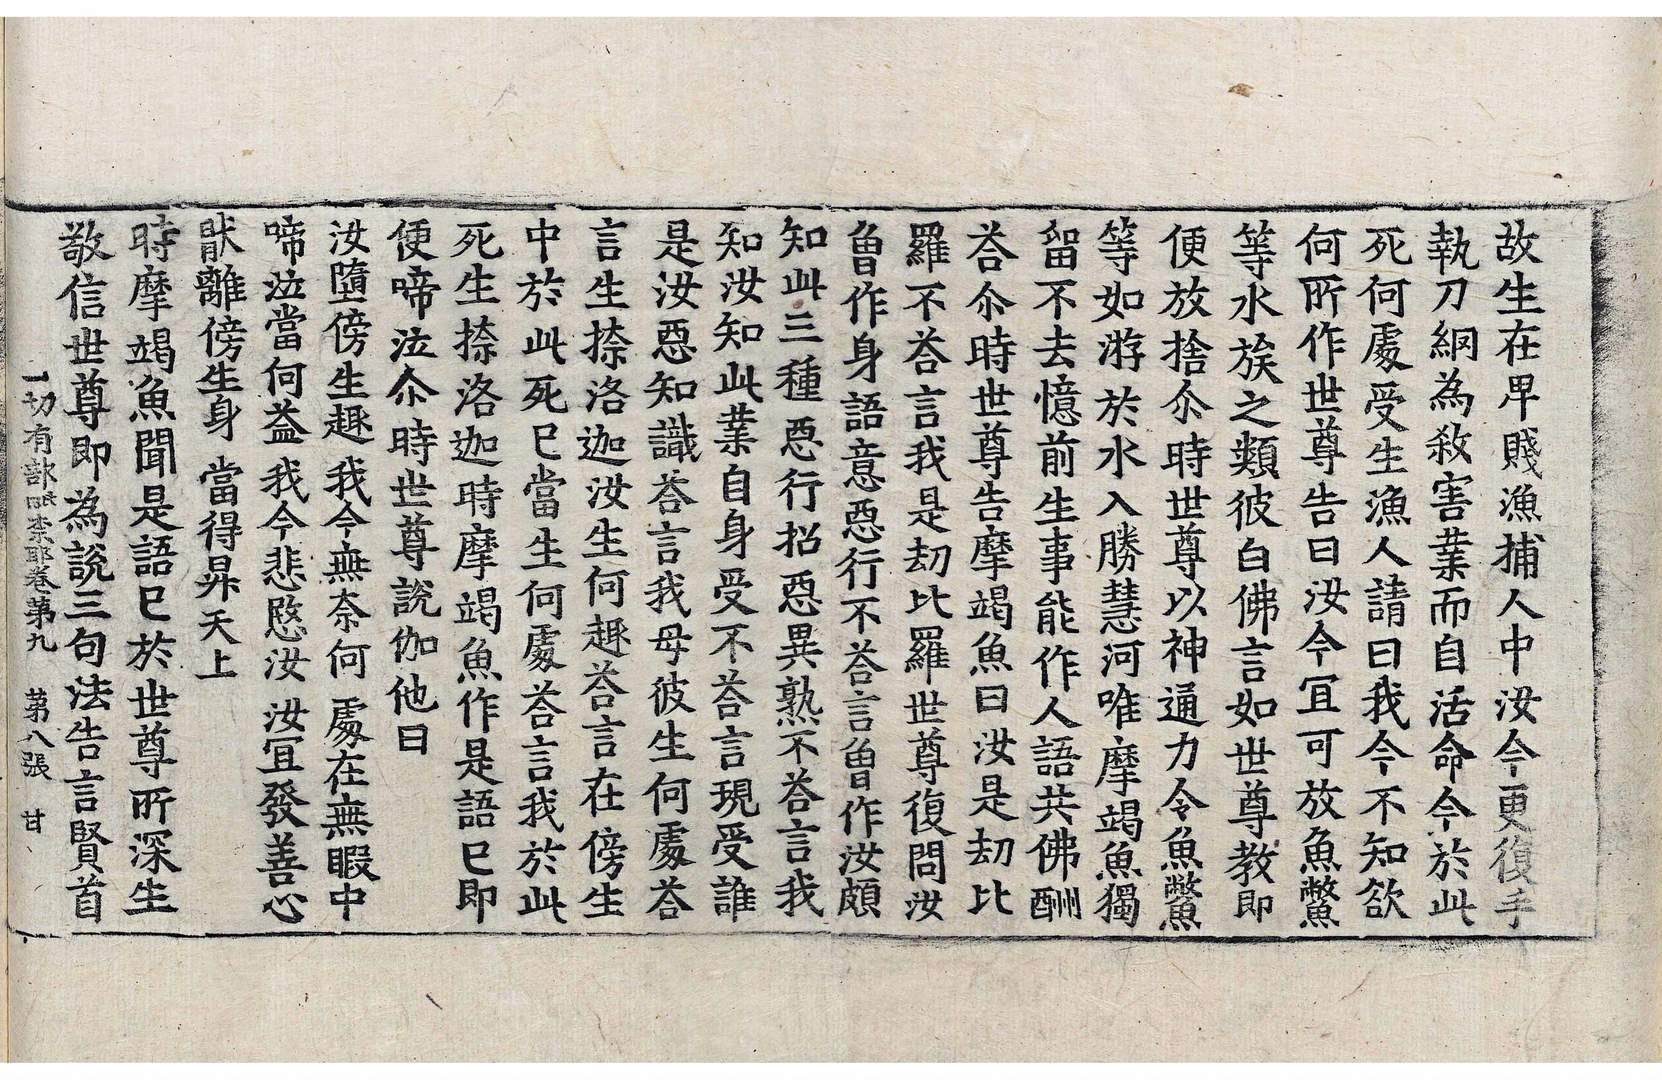 故生在卑賤漁捕人中汝今更復手
執刀網為煞害業而自活命今於此
死何處受生漁人請曰我今不知欲
何所作世尊告曰汝今宜可放魚鱉
等水族之類彼白佛言如世尊教即
便放捨尒時世尊以神通力令魚鱉
等如游於水入勝慧河唯摩竭魚獨
留不去憶前生事能作人語共佛酬
荅尒時世尊告摩竭魚曰汝是刼比
羅不荅言我是刼比羅世尊復問汝
曾作身語意惡行不荅言曾作汝頗
知此三種惡行招惡異熟不荅言我
知汝知此業自身受不荅言現受誰
是汝惡知識荅言我母彼生何處荅
言生捺洛迦汝生何趣荅言在傍生
中於此死已當生何處荅言我於此
死生捺洛迦時摩竭魚作是語已即
便啼泣尒時世尊說伽他曰
汝墮傍生趣 我今無奈何 處在無暇中
啼泣當何益 我今悲愍汝 汝宜發善心
猒離傍生身 當得昇天上
時摩竭魚聞是語已於世尊所深生
敬信世尊即為說三句法告言賢首
一切有部毗柰耶卷第九 第八張 甘